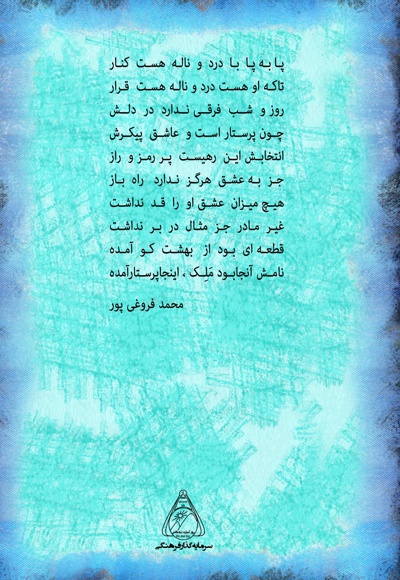 پا به پا با درد و ناله هست کنار
تا که او هست درد و ناله هست قرار
روز و شب فرقی ندارد در دلش
چون پرستار است و عاشق پیکرش
انتخابش این رهیست پر رمز و راز
جز به عشق هرگز ندارد راه باز
هیچ میزان عشق او را قد نداشت
غیر مادر جز مثال در بر نداشت
قطعه ای بود از بهشت کو آمده
نامش آنجا بود مَلِک ، اینجا پرستار آمده
محمد فروغی پور
سرمایه گذار فرهنگی